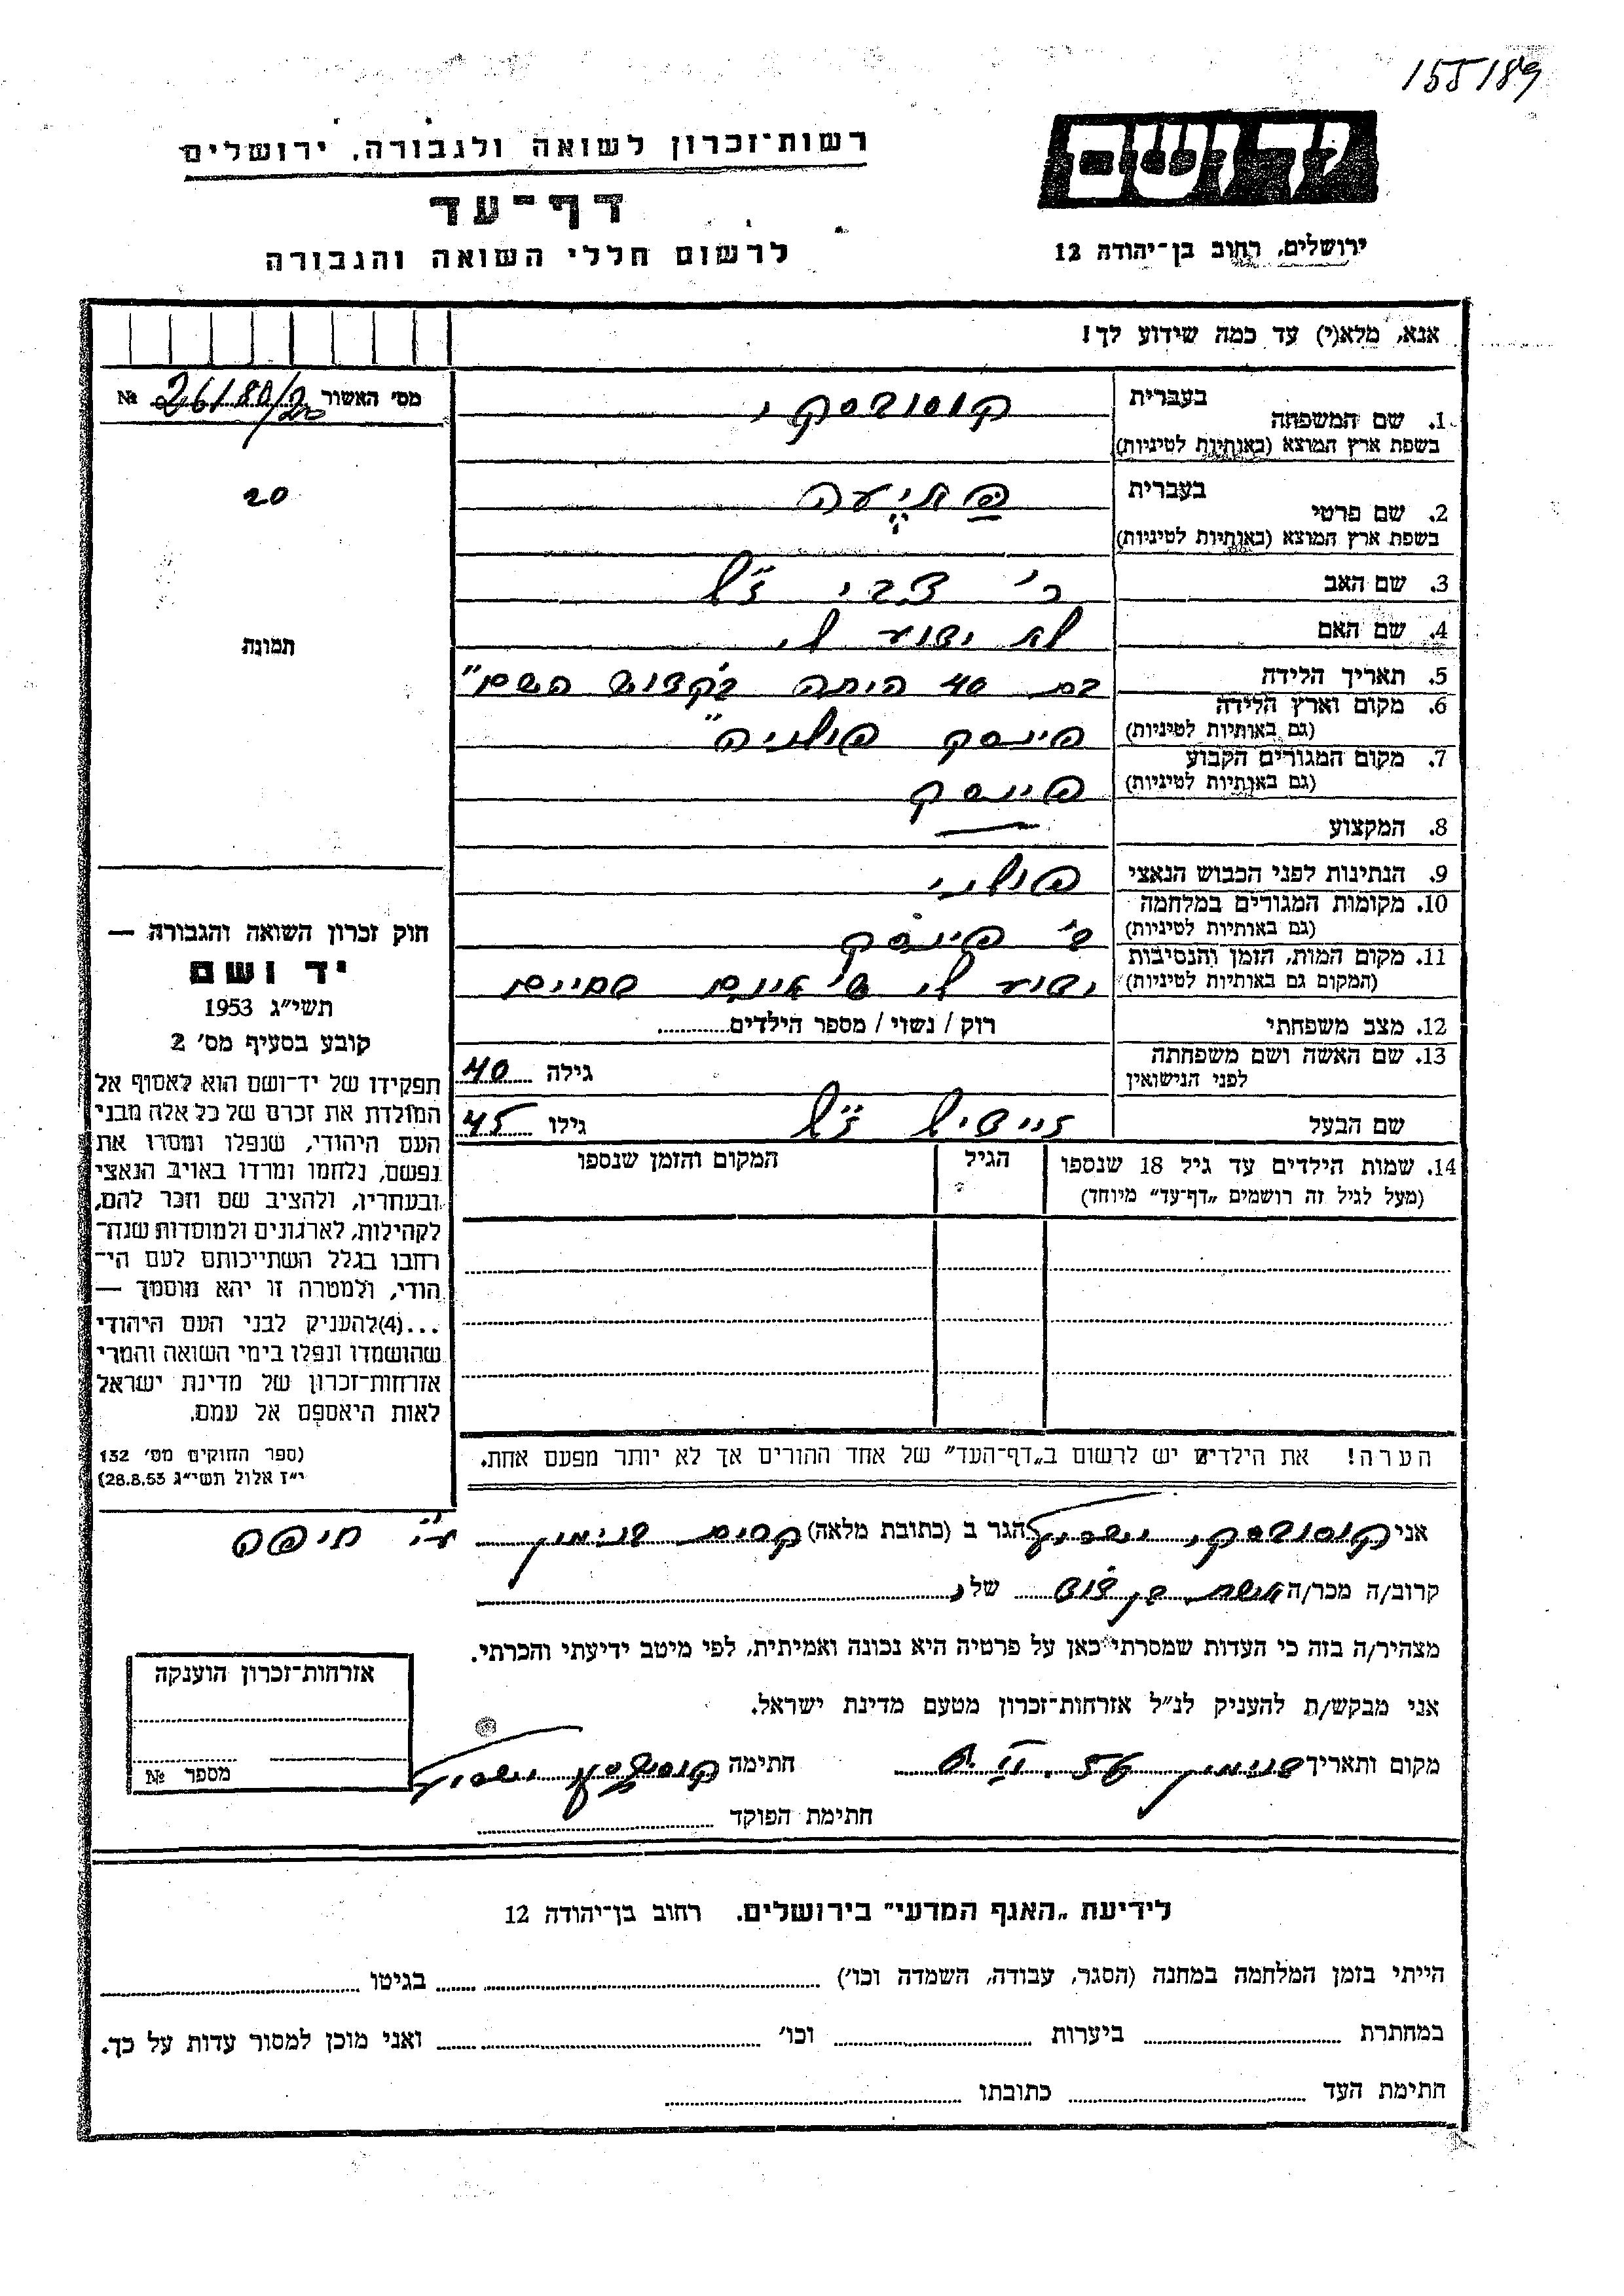 155189
יד ושם
רשות־זכרון לשואה ולגבורה, ירושלים
דף־עד
לרשום חללי השואה והגבורה
ירושלים, רחוב בן־יהודה 12
אנא, מלא(י) עד כמה שידוע לך!
מס' האשור №
20
תמונה
1. שם המשפחה בעברית קוסובסקי
בשפת ארץ המוצא (באותיות לטיניות)
2. שם פרטי בעברית
בשפת ארץ המוצא (באותיות לטיניות)
3. שם האב ר' צבי ז"ל
4. שם האם לא ידוע לי
5. תאריך הלידה בת 40 היתה בקדוש השם"
6. מקום וארץ הלידה (גם באותיות לטיניות) פינסק פולניה"
7. מקום המגורים הקבוע (גם באותיות לטיניות) פינסק
8. המקצוע —
9. הנתינות לפני הכבוש הנאצי פולני
10. מקומות המגורים במלחמה (גם באותיות לטיניות) פינסק
11. מקום המות, הזמן והנסיבות (המקום גם באותיות לטיניות) ידוע לי שאינם בחיים
12. מצב משפחתי רוק / נשוי / מספר הילדים
13. שם האשה ושם משפחתה לפני הנישואין גילה 40
שם הבעל זיידל ז"ל גילו 45
14. שמות הילדים עד גיל 18 שנספו הגיל המקום והזמן שנספו
(מעל לגיל זה רושמים „דף־עד" מיוחד)
הערה! את הילדים יש לרשום ב„דף־העד" של אחד ההורים אך לא יותר מפעם אחת.
חוק זכרון השואה והגבורה —
יד ושם
תשי"ג 1953
קובע בסעיף מס' 2
תפקידו של יד־ושם הוא לאסוף אל
המולדת את זכרם של כל אלה מבני
העם היהודי, שנפלו ומסרו את
נפשם, נלחמו ומרדו באויב הנאצי
ובעוזריו, ולהציב שם וזכר להם,
לקהילות, לארגונים ולמוסדות שנח־
רחבו בגלל השתייכותם לעם הי־
הודי, ולמטרה זו יהא מוסמך —
...(4)להעניק לבני העם היהודי
שהושמדו ונפלו בימי השואה והמרי
אזרחות־זכרון של מדינת ישראל
לאות היאספם אל עמם.
(ספר החוקים מס' 132
י"ז אלול תשי"ג 28.8.53)
אני קוסובסקי הגר ב (כתובת מלאה) ע"י חיפה
קרוב/ה מכר/ה של
מצהיר/ה בזה כי העדות שמסרתי כאן על פרטיה היא נכונה ואמיתית, לפי מיטב ידיעתי והכרתי.
אני מבקש/ת להעניק לנ"ל אזרחות־זכרון מטעם מדינת ישראל.
מקום ותאריך חתימה
חתימת הפוקד
אזרחות־זכרון הוענקה
מספר №
לידיעת „האגף המדעי" בירושלים. רחוב בן־יהודה 12
הייתי בזמן המלחמה במחנה (הסגר, עבודה, השמדה וכו') בגיטו
במחתרת ביערות וכו' ואני מוכן למסור עדות על כך.
חתימת העד כתובתו